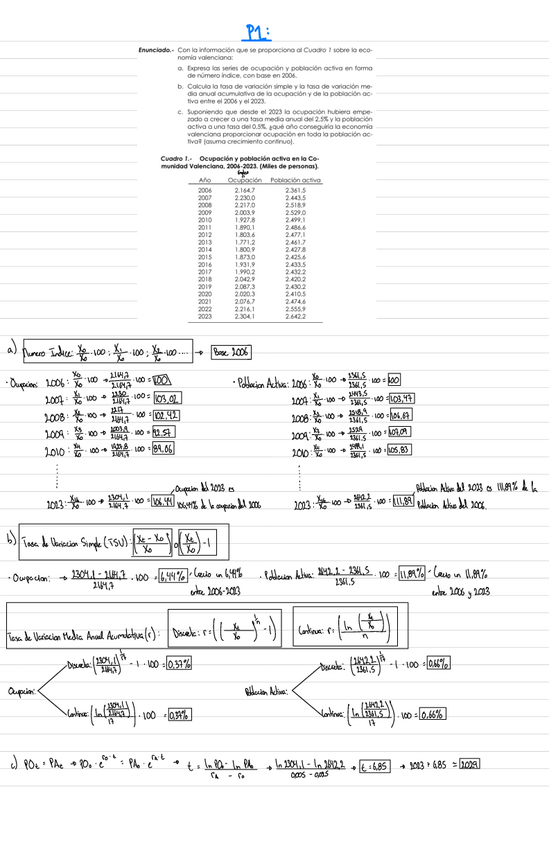 P1:
Enunciado.- Con la información que se proporciona al Cuadro 1 sobre la eco-
nomía valenciana:
a. Expresa las series de ocupación y población activa en forma
de número índice, con base en 2006.
b. Calcula la tasa de variación simple y la tasa de variación me-
dia anual acumulativa de la ocupación y de la población ac-
tiva entre el 2006 y el 2023.
c. Suponiendo que desde el 2023 la ocupación hubiera empe-
zado a crecer a una tasa media anual del 2,5% y la población
activa a una tasa del 0,5%, ¿qué año conseguiría la economía
valenciana proporcionar ocupación en toda la población ac-
tiva? (asuma crecimiento continuo).
Cuadro 1.- Ocupación y población activa en la Co-
munidad Valenciana, 2006-2023. (Miles de personas).
Año Ocupación Población activa
2006 2.164,7 2.361,5
2007 2.230,0 2.443,5
2008 2.217,0 2.518,9
2009 2.003,9 2.529,0
2010 1.927,8 2.499,1
2011 1.890,1 2.486,6
2012 1.803,6 2.477,1
2013 1.771,2 2.461,7
2014 1.800,9 2.427,8
2015 1.873,0 2.425,6
2016 1.931,9 2.433,5
2017 1.990,2 2.432,2
2018 2.042,9 2.420,2
2019 2.087,3 2.430,2
2020 2.020,3 2.410,5
2021 2.076,7 2.474,6
2022 2.216,1 2.555,9
2023 2.304,1 2.642,2
a) Numero Indice: X₀/X₀ · 100 ; X₁/X₀ · 100 ; X₂/X₀ · 100 .... → Base 2006
· Ocupacion: 2006: X₀/X₀ · 100 → 2164,7/2164,7 · 100 = 100 · Poblacion Activa: 2006: X₀/X₀ · 100 → 2361,5/2361,5 · 100 = 100
2007: X₁/X₀ · 100 → 2230/2164,7 · 100 = 103,02 2007: X₁/X₀ · 100 → 2443,5/2361,5 · 100 = 103,47
2008: X₂/X₀ · 100 → 2217/2164,7 · 100 = 102,42 2008: X₂/X₀ · 100 → 2518,9/2361,5 · 100 = 106,67
2009: X₃/X₀ · 100 → 2003,9/2164,7 · 100 = 92,57 2009: X₃/X₀ · 100 → 2529/2361,5 · 100 = 107,09
2010: X₄/X₀ · 100 → 1927,8/2164,7 · 100 = 89,06 2010: X₄/X₀ · 100 → 2499,1/2361,5 · 100 = 105,83
2023: 100 → 2304,1/2164,7 · 100 = 106,44 Ocupacion del 2023 es 106,44% de la ocupacion del 2006 2023: 100 → 2642,2/2361,5 · 100 = 111,89 Poblacion Activa del 2023 es 111,89% de la Poblacion Activa del 2006
b) Tasa de Variacion Simple (TSV): (Xₜ - X₀/X₀) o (Xₜ/X₀) - 1
· Ocupacion: → 2304,1 - 2164,7/2164,7 · 100 = 6,44% Crecio un 6,44% entre 2006-2023 · Poblacion Activa: 2642,2 - 2361,5/2361,5 · 100 = 11,89% Crecio un 11,89% entre 2006 y 2023
Tasa de Variacion Media Anual Acumulativa (r): Discreta: r = ((Xₜ/X₀)^1/n - 1) Continua: r = (ln (Xₜ/X₀)/n)
Ocupacion: Discreta: (2304,1/2164,7)^1/17 - 1 · 100 = 0,37% Poblacion Activa: Discreta: (2642,2/2361,5)^1/17 - 1 · 100 = 0,66%
Continua: (ln(2304,1/2164,7)/17) · 100 = 0,37% Continua: (ln(2642,2/2361,5)/17) · 100 = 0,66%
c) POₜ = PAₜ → PO₀ · e^r₀·t = PA₀ · e^rₐ·t → t = ln PO₀ - ln PA₀/rₐ - r₀ → ln 2304,1 - ln 2642,2/0,005 - 0,025 → t = 6,85 → 2023 + 6,85 = 2029